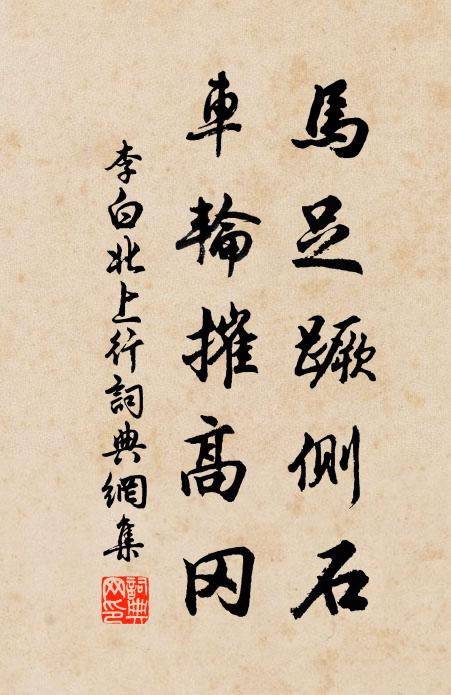 馬足蹶側石
車輪摧高冈
李白北上行詞典網集
詞典網印